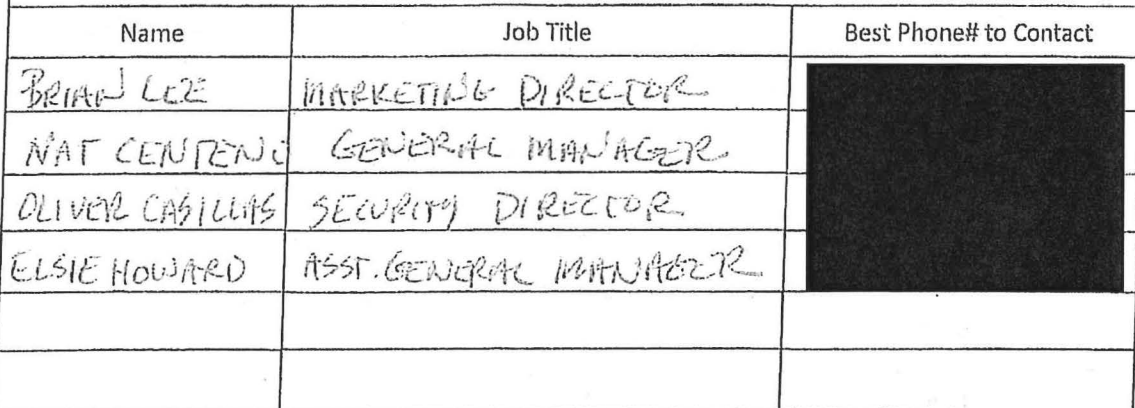 Name Job Title Best Phone# to Contact
BRIAN LEE MARKETING DIRECTOR
NAT CENTENO GENERAL MANAGER
OLIVER CASILLAS SECURITY DIRECTOR
ELSIE HOWARD ASST. GENERAL MANAGER